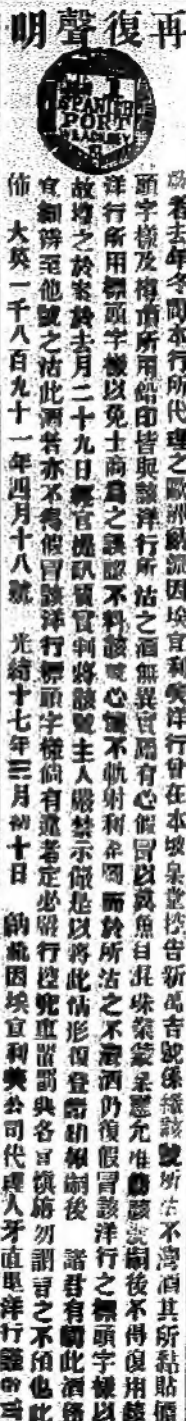 再復聲明
SPANISH
PORT
啟者去年冬間本行所代理之歐洲 流因埃宜利 洋行曾在本坡臬堂控告新萬吉號係稱該號所沽不灣酒其所黏貼標
頭字樣及樽頂所用鉛印皆與該洋行所沽之酒無異實屬有心假冒以致魚目混珠業蒙臬憲允准飭該號嗣後不得復用該
洋行所用標頭字樣以免士商爲之誤認不料該號心懷不軌射利希圖而於所沽之不灣酒仍復假冒該洋行之標頭字樣以
故控之於案於去月二十九日經官提訊質實判將該號主人嚴禁示儆是以將此情形復登諸叻報嗣後 諸君有購此酒務
宜細辨至他號之沽此酒者亦不得假冒該洋行標頭字樣倘有違者定必嚴行控究重 罰與各宜慎旃勿謂言之不預也此
佈 大英一千八百九十一年四月十八號 光緒十七年三月初十日 因埃宜利 公司代理人牙直里洋行謹啓